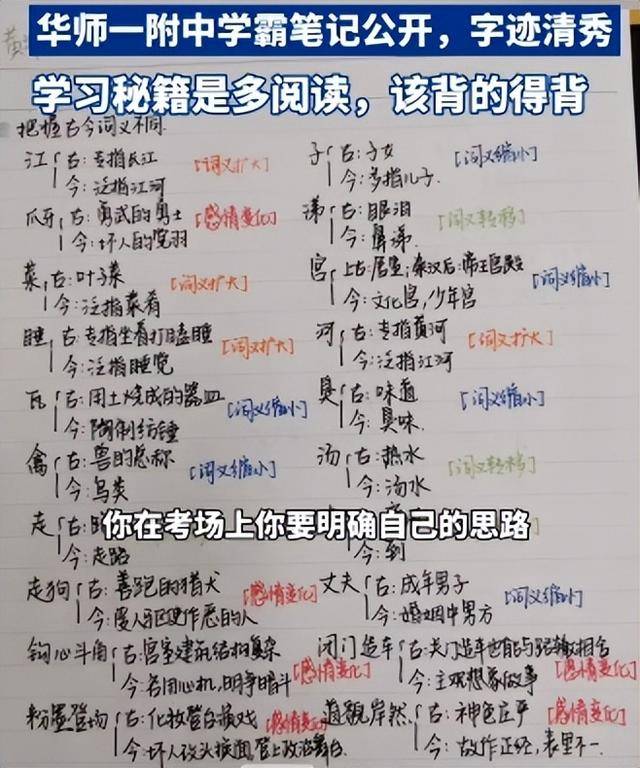 华师一附中学霸笔记公开，字迹清秀
学习秘籍是多阅读，该背的得背
黄
把握古今词义不同.
江 古:专指长江 [词义扩大]
今:泛指江河
子 古:子女 [词义缩小]
今:多指儿子.
爪牙 古:勇武的勇士 [感情变化]
今:坏人的党羽
涕 古:眼泪 [词义转移]
今:鼻涕.
菜 古:叶子菜 [词义扩大]
今:泛指菜肴
宫 上古:居室;秦汉后:帝王宫殿 [词义缩小]
今:文化宫,少年宫
睡 古:专指坐着打瞌睡 [词义扩大]
今:泛指睡觉
河 古:专指黄河 [词义扩大]
今:泛指江河
瓦 古:用土烧成的器皿 [词义缩小]
今:陶制纺锤
臭 古:味道 [词义缩小]
今:臭味.
禽 古:兽的总称 [词义缩小]
今:鸟类
汤 古:热水 [词义转移]
今:汤水
走 古:
今:走路
今:到
你在考场上你要明确自己的思路
走狗 古:善跑的猎犬 [感情变化]
今:受人驱使作恶的人
丈夫 古:成年男子 [词义缩小]
今:婚姻中男方
钩心斗角 古:宫室建筑结构复杂 [感情变化]
今:各用心机,明争暗斗
闭门造车 古:关门造车也能与路辙相合 [感情变化]
今:主观想象做事
粉墨登场 古:化妆登台演戏 [感情变化]
今:坏人改头换面,登上政治舞台.
道貌岸然 古:神色庄严 [感情变化]
今:故作正经,表里不一.